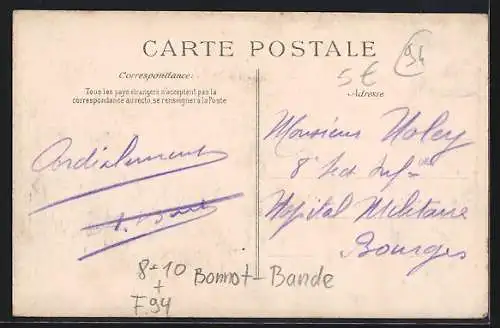 CARTE POSTALE
94
5€
Correspondance:
Adresse
Tous les pays étrangers n'acceptent pas la
correspondance au recto, se renseigner à la Poste
Monsieur Noley
8e Sect Infre
Cordialement
Hopital Militaire
Bourges
8+10
+
F.94
Bonnot-Bande